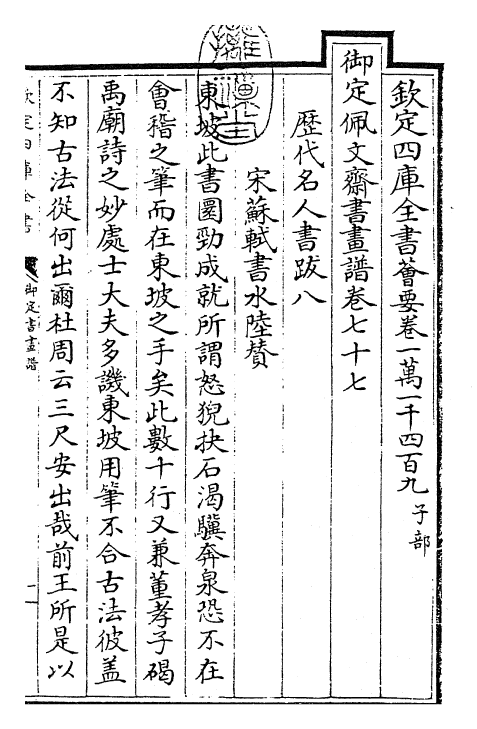 欽定四庫全書薈要卷一萬一千四百九 子部
御定佩文齋書畫譜卷七十七
歷代名人書跋八
宋蘇軾書水陸贊
東坡此書圜勁成就所謂怒猊抉石渴驥奔泉恐不在
會稽之筆而在東坡之手矣此數十行又兼董孝子碣
禹廟詩之妙處士大夫多譏東坡用筆不合古法彼盖
不知古法從何出爾杜周云三尺安出哉前王所是以
欽定四庫全書
御定書畫譜
一